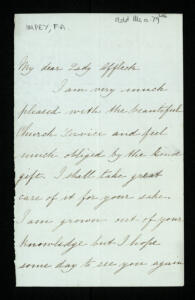 IMPEY, F.A.
My dear Lady Affleck
I am very much
pleased with the beautiful
Church Service and feel
much obliged by the kind
gift. I shall take great
care of it for your sake.
I am grown out of your
knowledge but I hope
some day to see you again